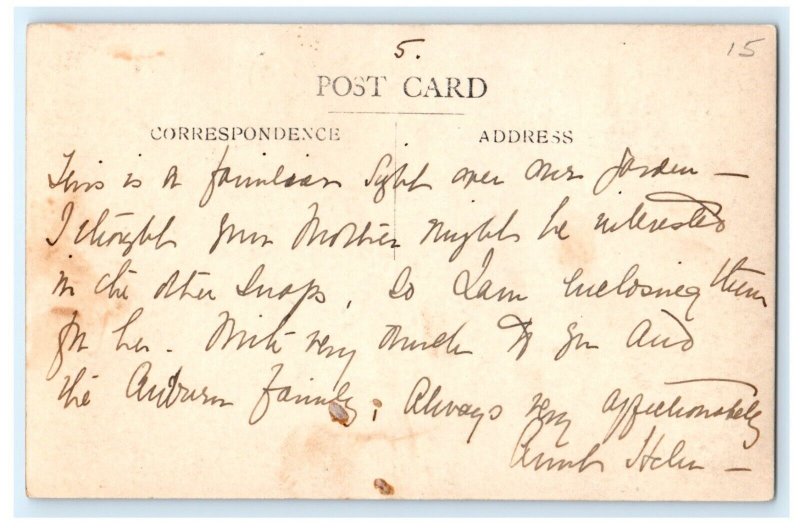 5.
15
POST CARD
CORRESPONDENCE
ADDRESS
This is a familiar sight over our garden —
I thought your Mother might be interested
in the other snaps, so I am enclosing them
for her. With very much to you and
the Auburn family, Always very affectionately
Aunt Helen —